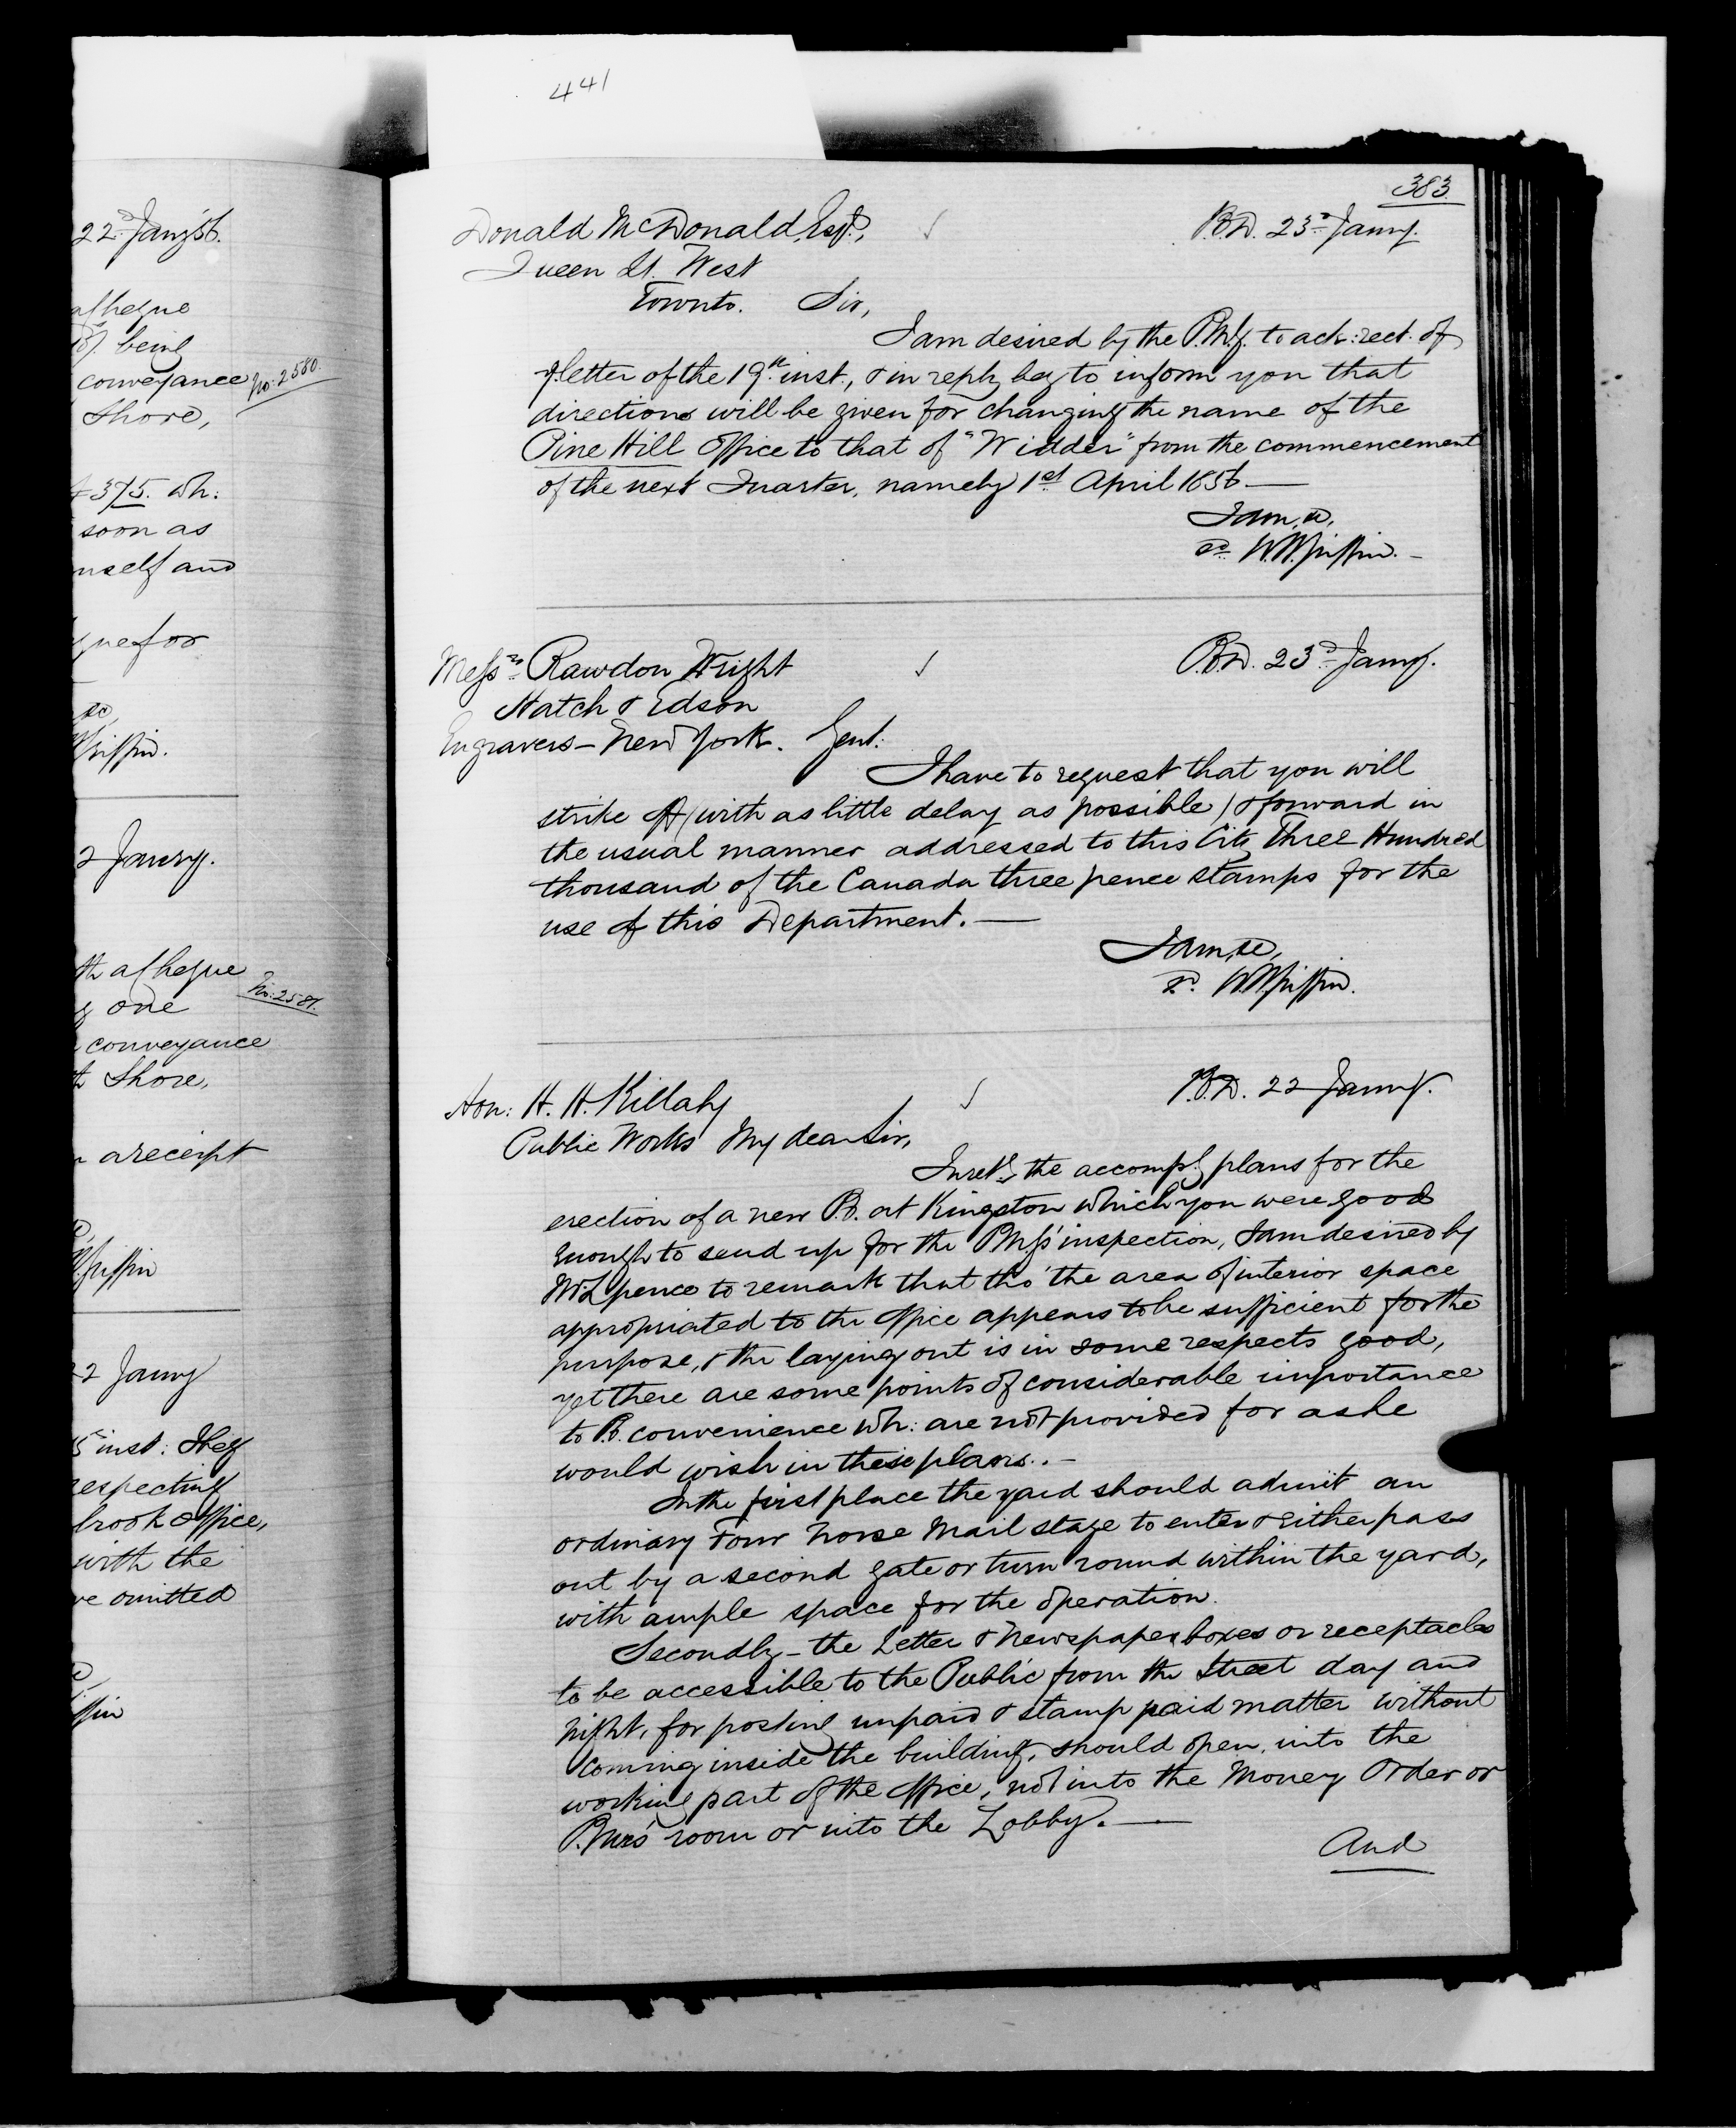 441
22d Jany 56.
a cheque
being
conveyance No: 2580.
Shore,
£375. wh:
soon as
mself and
que for
&c,
Griffin.
2 Janry.
th a cheque
No: 2581.
g one
conveyance
th Shore,
a receipt
Griffin
22 Janry
5 inst: they
respecting
brook Office,
with the
ve omitted
ffin
383
Donald McDonald, Esqr., P.O.D. 23d Janry.
Queen St. West
Toronto. Sir,
I am desired by the P.M.G. to ack: rect. of
yr letter of the 19th inst., & in reply beg to inform you that
directions will be given for changing the name of the
Pine Hill Office to that of "Widder" from the commencement
of the next Quarter, namely 1st April 1856 —
I am, &c,
sd W.H. Griffin. —
Messrs Rawdon Wright P.O.D. 23d Janry.
Hatch & Edson
Engravers — New York. Gent:
I have to request that you will
strike off (with as little delay as possible) & forward in
the usual manner addressed to this City Three Hundred
thousand of the Canada three pence stamps for the
use of this Department. —
I am, &c,
sd. W.H. Griffin.
Hon: H. H. Killaly P.O.D. 22 Janry.
Public Works My dear Sir,
In retg. the accompg plans for the
erection of a new P.O. at Kingston which you were good
enough to send up for the PMG's inspection, I am desired by
Mr Spence to remark that tho' the area of interior space
appropriated to the office appears to be sufficient for the
purpose, & the laying out is in some respects good,
yet there are some points of considerable importance
to P.O. convenience wh: are not provided for as he
would wish in these plans. —
In the first place the yard should admit an
ordinary Four horse Mail stage to enter & either pass
out by a second gate or turn round within the yard,
with ample space for the operation.
Secondly — the Letter & Newspaper boxes or receptacles
to be accessible to the Public from the Street day and
night, for posting unpaid & stamp paid matter without
coming inside the building, should open, into the
working part of the office, not into the Money Order or
P.Mrs' room or into the Lobby. —
And